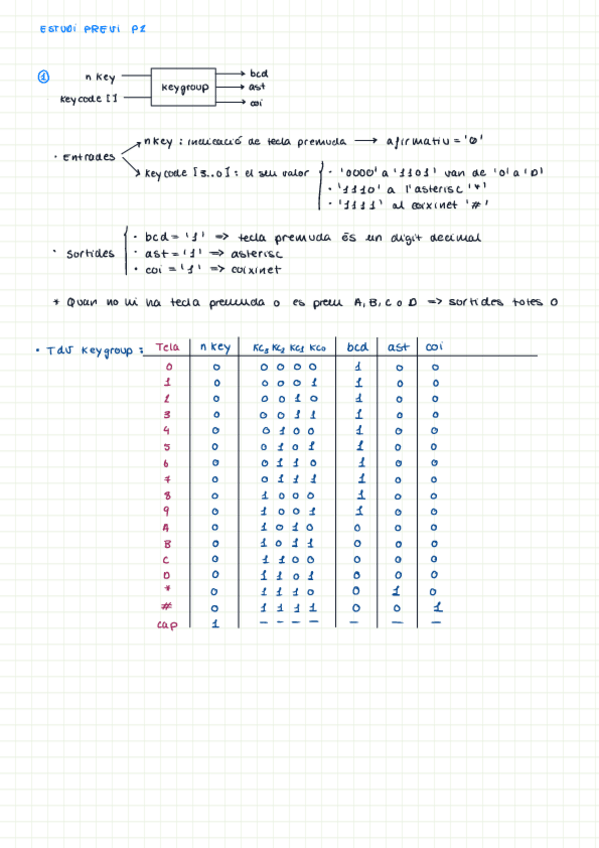 ESTUDI PREVI P1
① nkey bcd
keygroup ast
keycode [] coi
nkey : indicació de tecla premuda → afirmatiu = '0'
· Entrades
keycode [3..0] : el seu valor · '0000' a '1101' van de '0' a 'D'
· '1110' a l'asterisc '*'
· '1111' al coixinet '#'
· bcd = '1' => tecla premuda és un dígit decimal
· Sortides · ast = '1' => asterisc
· coi = '1' => coixinet
* Quan no hi ha tecla premuda o es prem A, B, C o D => sortides totes 0
· TdV keygroup : Tcla nkey KC3 KC2 KC1 KC0 bcd ast coi
0 0 0 0 0 0 1 0 0
1 0 0 0 0 1 1 0 0
2 0 0 0 1 0 1 0 0
3 0 0 0 1 1 1 0 0
4 0 0 1 0 0 1 0 0
5 0 0 1 0 1 1 0 0
6 0 0 1 1 0 1 0 0
7 0 0 1 1 1 1 0 0
8 0 1 0 0 0 1 0 0
9 0 1 0 0 1 1 0 0
A 0 1 0 1 0 0 0 0
B 0 1 0 1 1 0 0 0
C 0 1 1 0 0 0 0 0
D 0 1 1 0 1 0 0 0
* 0 1 1 1 0 0 1 0
# 0 1 1 1 1 0 0 1
cap 1 - - - - - - -